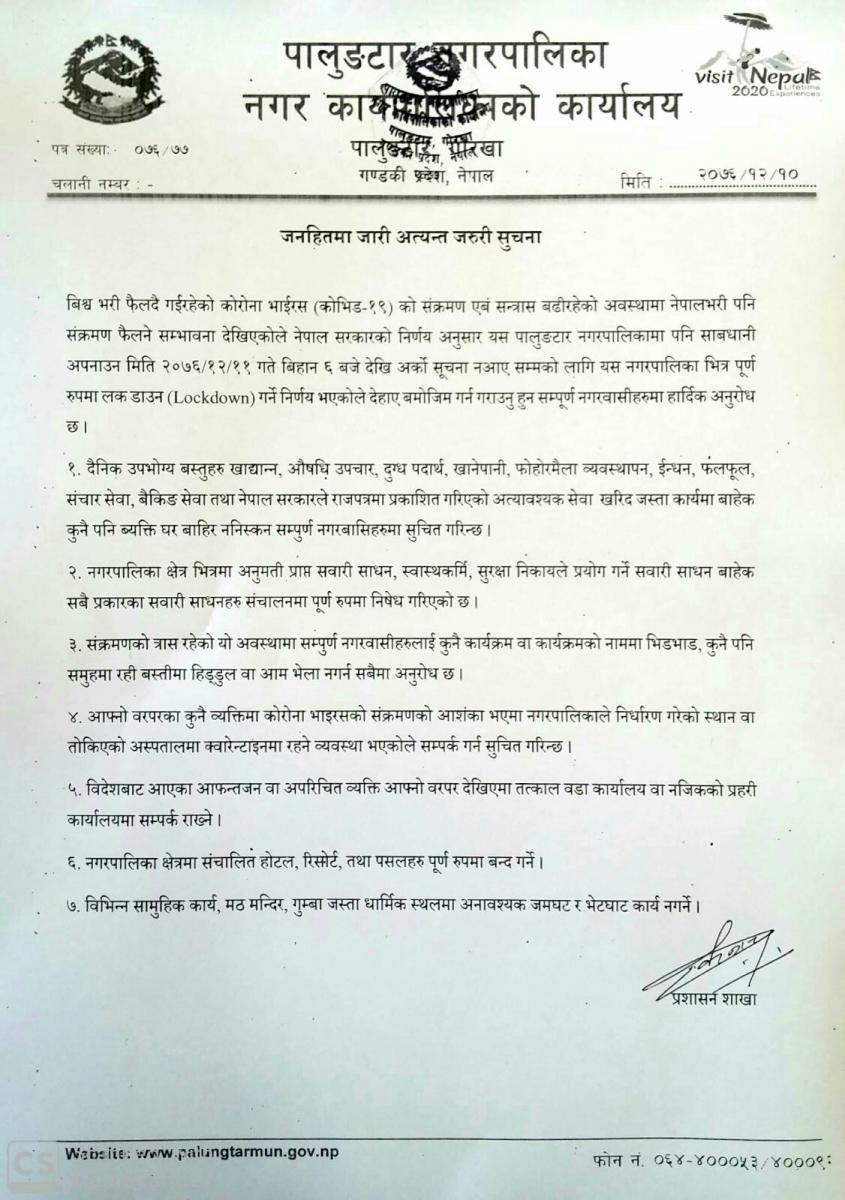 पालुङटार नगरपालिका
नगर कार्यपालिकाको कार्यालय
visit Nepal
2020 Lifetime Experiences
पत्र संख्याः ०७६/७७
पालुङटार, गोरखा
गण्डकी प्रदेश, नेपाल
चलानी नम्बर : -
मिति : २०७६/१२/१०
जनहितमा जारी अत्यन्त जरुरी सुचना
बिश्व भरी फैलदै गईरहेको कोरोना भाईरस (कोभिड-१९) को संक्रमण एबं सन्त्रास बढीरहेको अवस्थामा नेपालभरी पनि
संक्रमण फैलने सम्भावना देखिएकोले नेपाल सरकारको निर्णय अनुसार यस पालुङटार नगरपालिकामा पनि साबधानी
अपनाउन मिति २०७६/१२/११ गते बिहान ६ बजे देखि अर्को सूचना नआए सम्मको लागि यस नगरपालिका भित्र पूर्ण
रुपमा लक डाउन (Lockdown) गर्ने निर्णय भएकोले देहाए बमोजिम गर्न गराउनु हुन सम्पूर्ण नगरवासीहरुमा हार्दिक अनुरोध
छ ।
१. दैनिक उपभोग्य बस्तुहरु खाद्यान्न, औषधि उपचार, दुग्ध पदार्थ, खानेपानी, फोहोरमैला व्यवस्थापन, ईन्धन, फलफूल,
संचार सेवा, बैकिङ सेवा तथा नेपाल सरकारले राजपत्रमा प्रकाशित गरिएको अत्यावश्यक सेवा खरिद जस्ता कार्यमा बाहेक
कुनै पनि ब्यक्ति घर बाहिर ननिस्कन सम्पुर्ण नगरबासिहरुमा सुचित गरिन्छ ।
२. नगरपालिका क्षेत्र भित्रमा अनुमती प्राप्त सवारी साधन, स्वास्थकर्मि, सुरक्षा निकायले प्रयोग गर्ने सवारी साधन बाहेक
सबै प्रकारका सवारी साधनहरु संचालनमा पूर्ण रुपमा निषेध गरिएको छ ।
३. संक्रमणको त्रास रहेको यो अवस्थामा सम्पुर्ण नगरवासीहरुलाई कुनै कार्यक्रम वा कार्यक्रमको नाममा भिडभाड, कुनै पनि
समुहमा रही बस्तीमा हिड्डुल वा आम भेला नगर्न सबैमा अनुरोध छ ।
४. आफ्नो वरपरका कुनै व्यक्तिमा कोरोना भाइरसको संक्रमणको आशंका भएमा नगरपालिकाले निर्धारण गरेको स्थान वा
तोकिएको अस्पतालमा क्वारेन्टाइनमा रहने व्यवस्था भएकोले सम्पर्क गर्न सुचित गरिन्छ ।
५. विदेशबाट आएका आफन्तजन वा अपरिचित व्यक्ति आफ्नो वरपर देखिएमा तत्काल वडा कार्यालय वा नजिकको प्रहरी
कार्यालयमा सम्पर्क राख्ने ।
६. नगरपालिका क्षेत्रमा संचालित होटल, रिसोर्ट, तथा पसलहरु पूर्ण रुपमा बन्द गर्ने ।
७. विभिन्न सामुहिक कार्य, मठ मन्दिर, गुम्बा जस्ता धार्मिक स्थलमा अनावश्यक जमघट र भेटघाट कार्य नगर्ने ।
प्रशासन शाखा
CS
Website: www.palungtarmun.gov.np
फोन नं. ०६४-४०००५३/